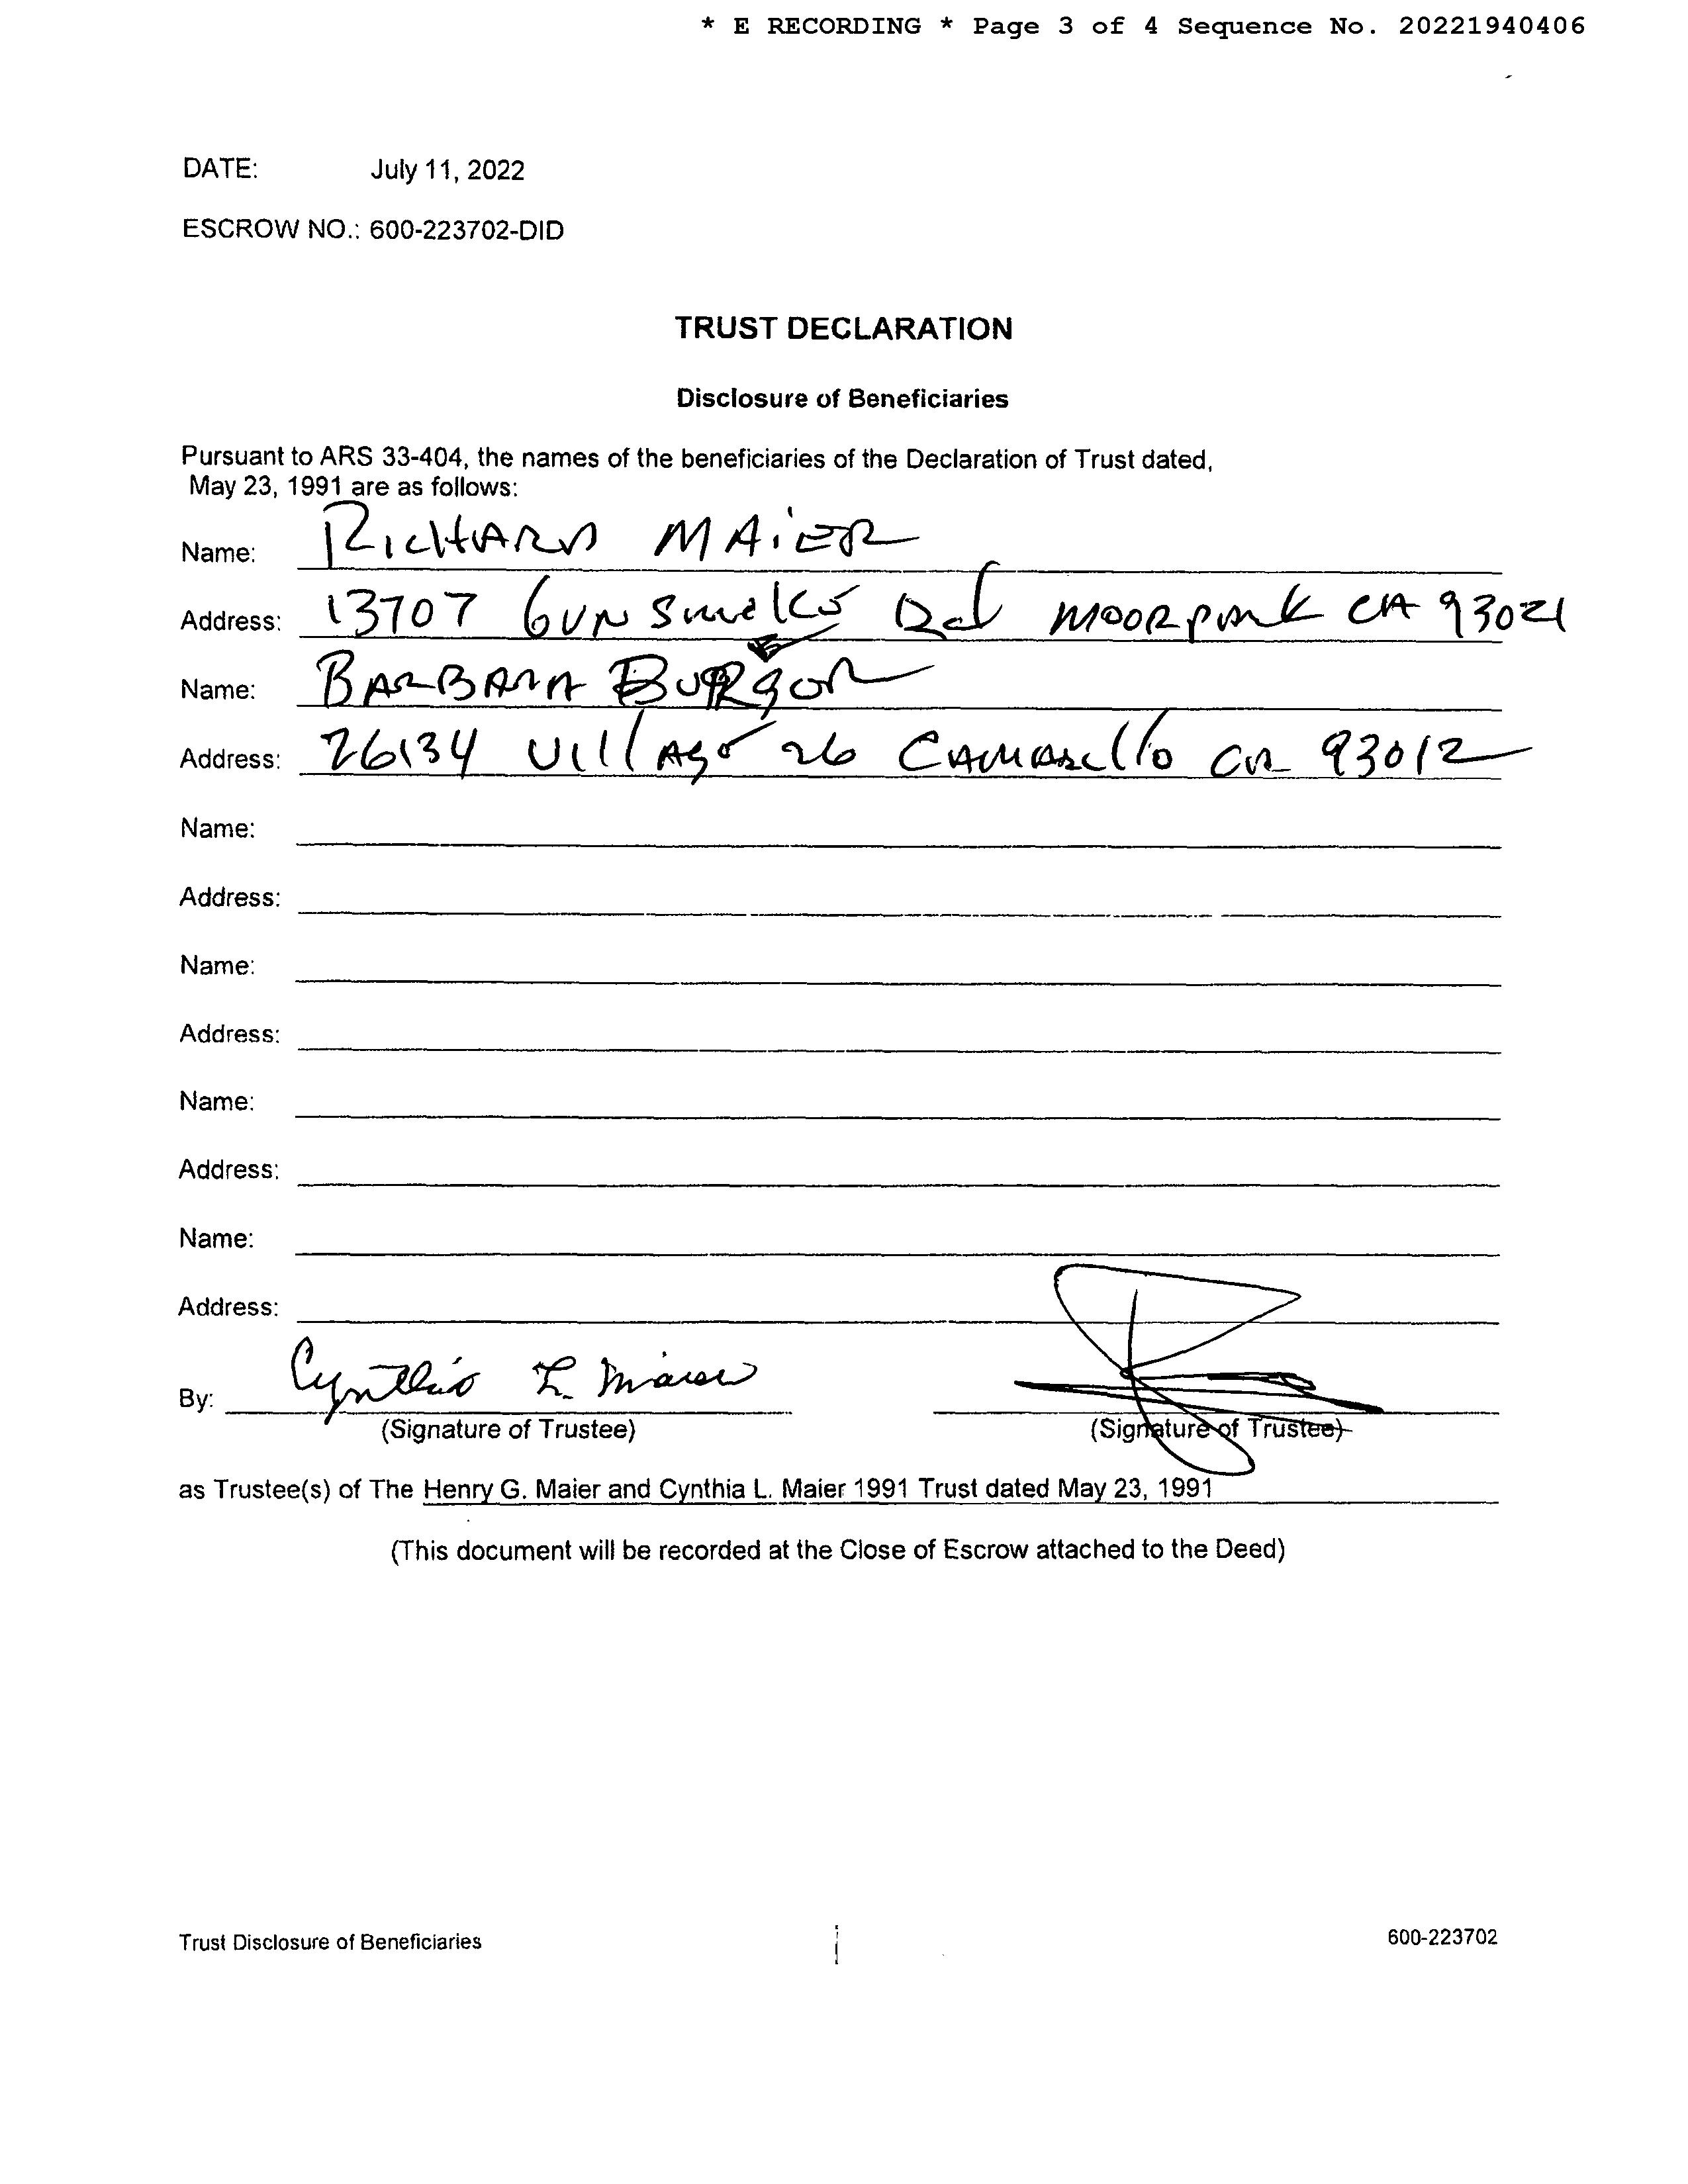 * E RECORDING * Page 3 of 4 Sequence No. 20221940406
DATE: July 11, 2022
ESCROW NO.: 600-223702-DID
TRUST DECLARATION
Disclosure of Beneficiaries
Pursuant to ARS 33-404, the names of the beneficiaries of the Declaration of Trust dated,
May 23, 1991 are as follows:
Name: RICHARD MAiER
Address: 13707 GUNSmoke Rd MOORPARK CA 93021
Name: BARBARA
Address: 26134 Village 26 CAMARillo CA 93012
Name:
Address:
Name:
Address:
Name:
Address:
Name:
Address:
By: Cynthia L. Maier
(Signature of Trustee) (Signature of Trustee)
as Trustee(s) of The Henry G. Maier and Cynthia L. Maier 1991 Trust dated May 23, 1991
(This document will be recorded at the Close of Escrow attached to the Deed)
Trust Disclosure of Beneficiaries 600-223702